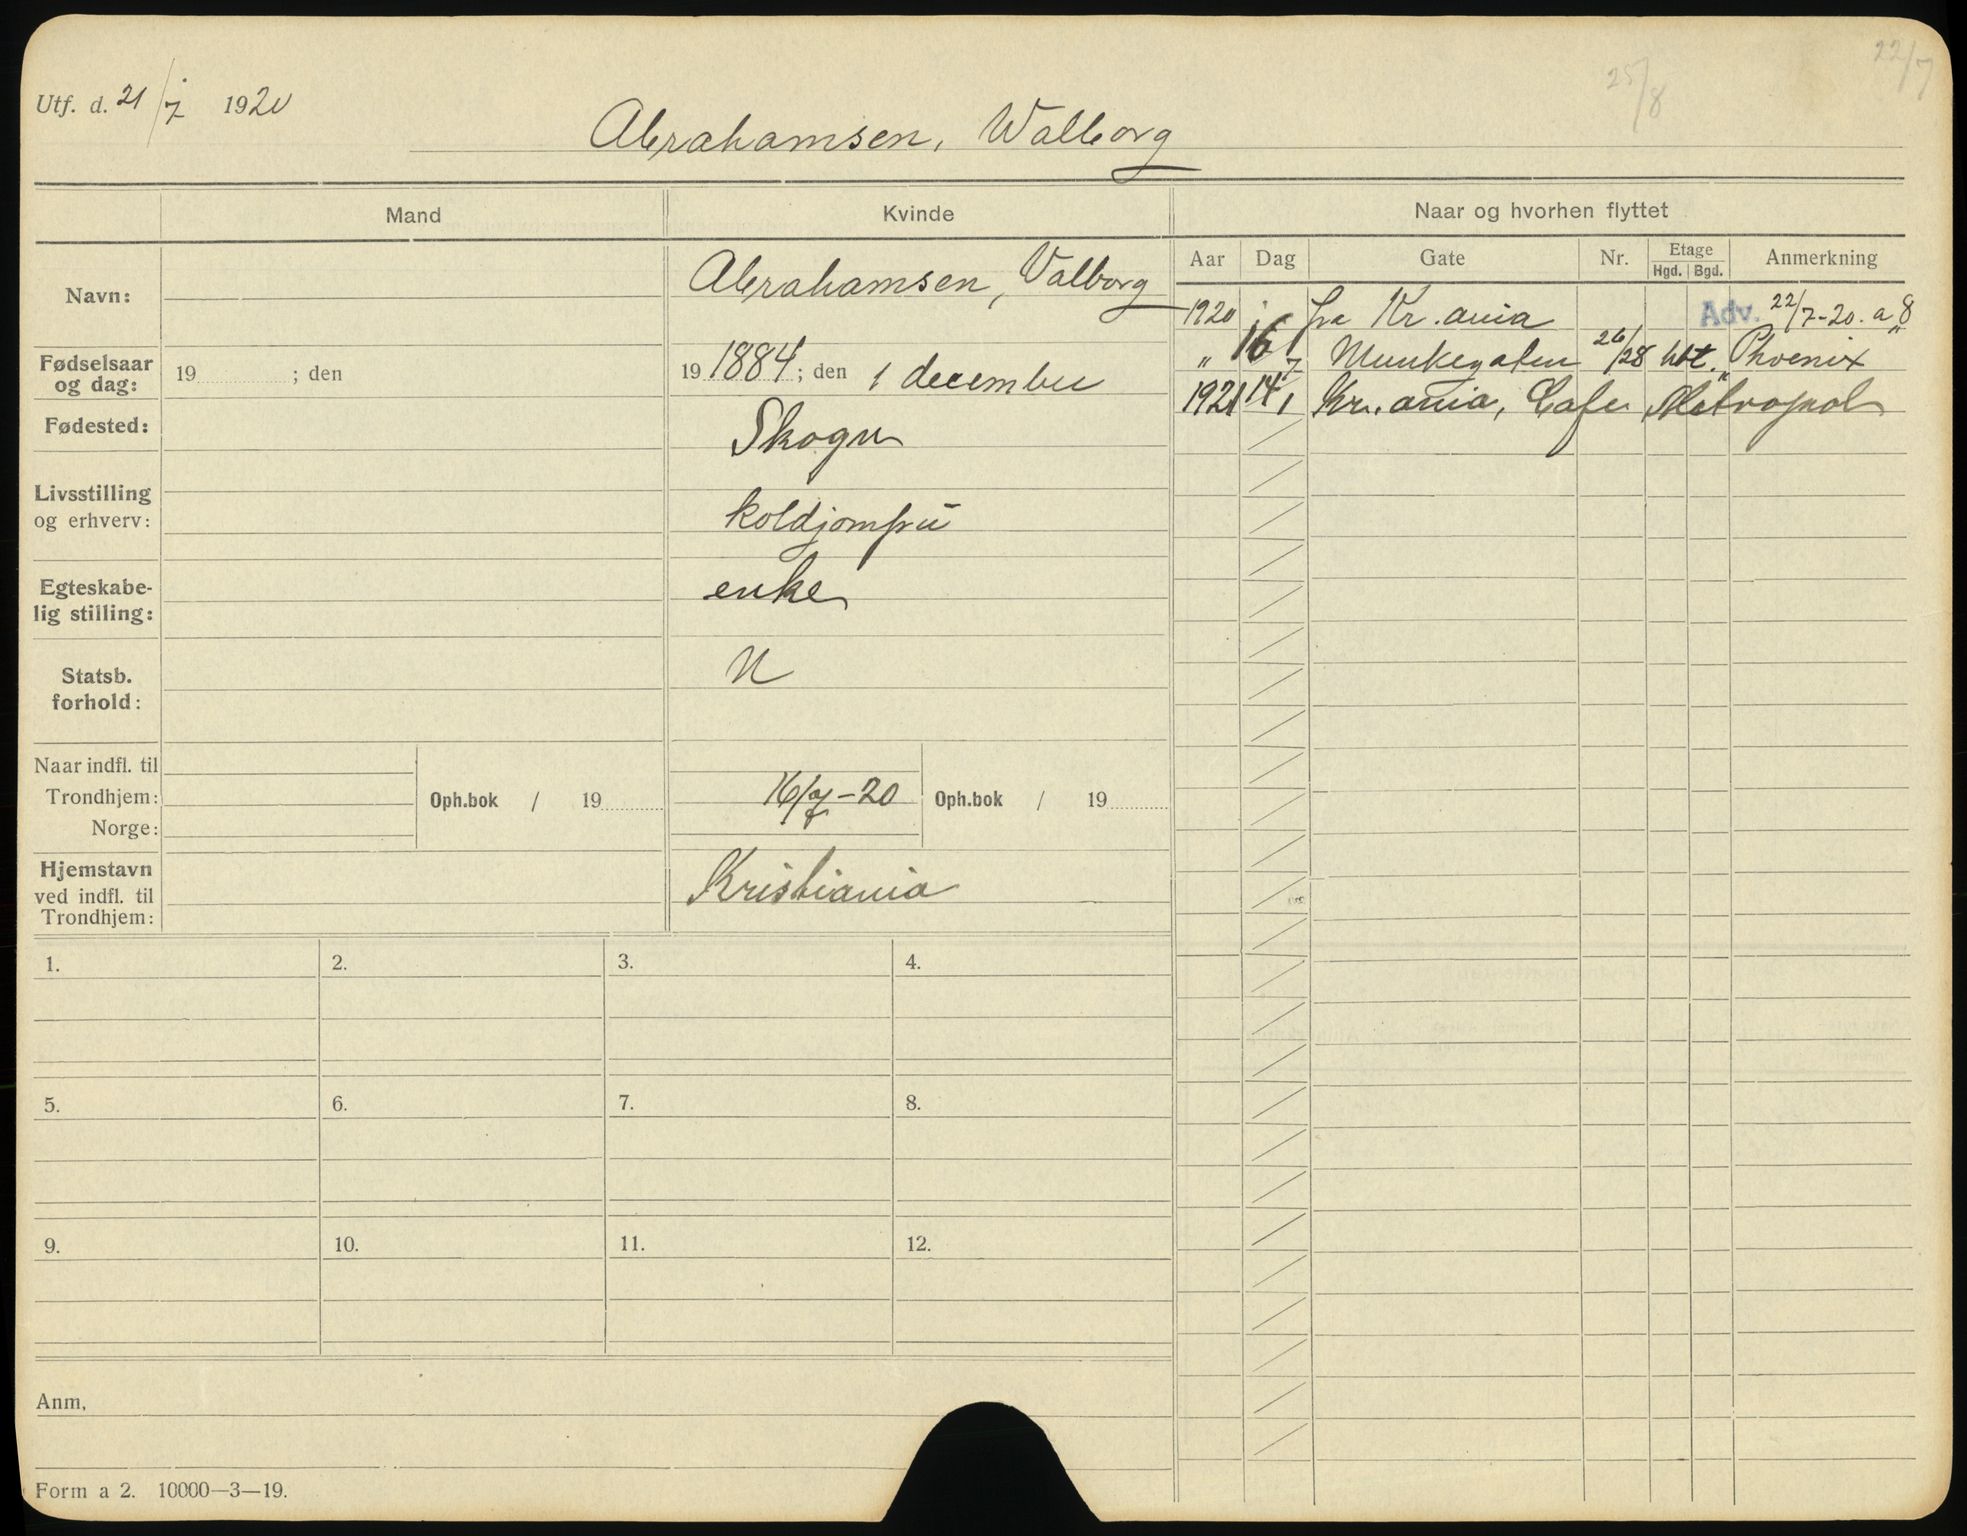 Utf. d. 21/7 1920
25/8
22/7
Abrahamsen, Walborg
Mand
Kvinde
Naar og hvorhen flyttet
Aar Dag Gate Nr. Etage Hgd. Bgd. Anmerkning
Navn:
Abrahamsen, Valborg
1920 fra Kr.ania Adv. 22/7-20. a 8
" 16/7 Munkegaten 26/28 hot. Phoenix
1921 14/1 Kr.ania, Cafe Metropol
Fødselsaar og dag:
19 ; den
19 1884; den 1 december
Fødested:
Skogn
Livsstilling og erhverv:
koldjomfru
Egteskabe-
lig stilling:
enke
Statsb. forhold:
N
Naar indfl. til
Trondhjem:
Norge:
Oph.bok / 19
16/7-20
Oph.bok / 19
Hjemstavn
ved indfl. til
Trondhjem:
Kristiania
1. 2. 3. 4.
5. 6. 7. 8.
9. 10. 11. 12.
Anm,
Form a 2. 10000—3—19.